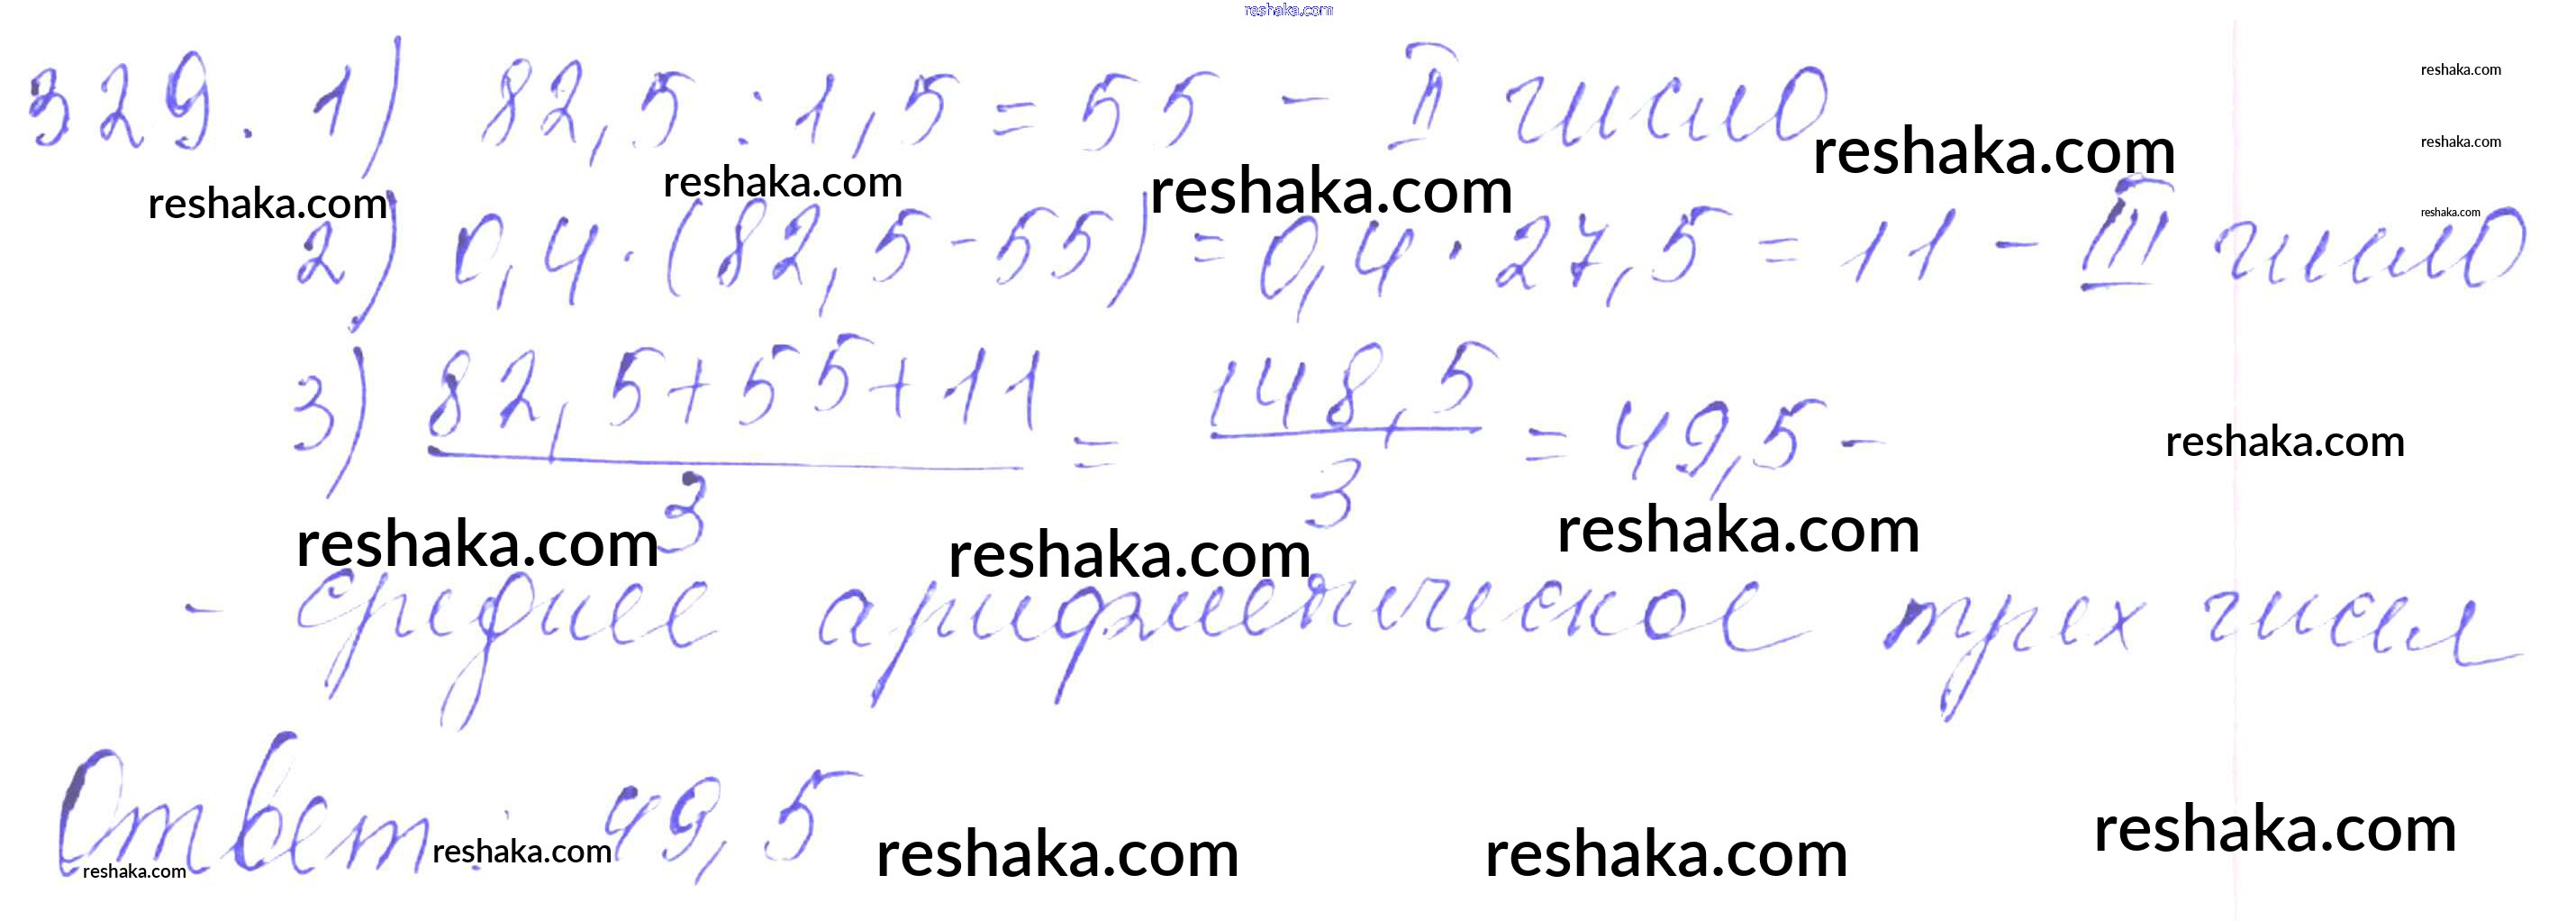 reshaka.com
329. 1) 82,5 : 1,5 = 55 - II число
reshaka.com
reshaka.com
reshaka.com
reshaka.com
reshaka.com
reshaka.com
reshaka.com
2) 0,4 · (82,5 - 55) = 0,4 · 27,5 = 11 - III число
3) (82,5 + 55 + 11)/3 = 148,5/3 = 49,5 -
reshaka.com
reshaka.com
reshaka.com
reshaka.com
- среднее арифметическое трех чисел
Ответ: 49,5
reshaka.com
reshaka.com
reshaka.com
reshaka.com
reshaka.com